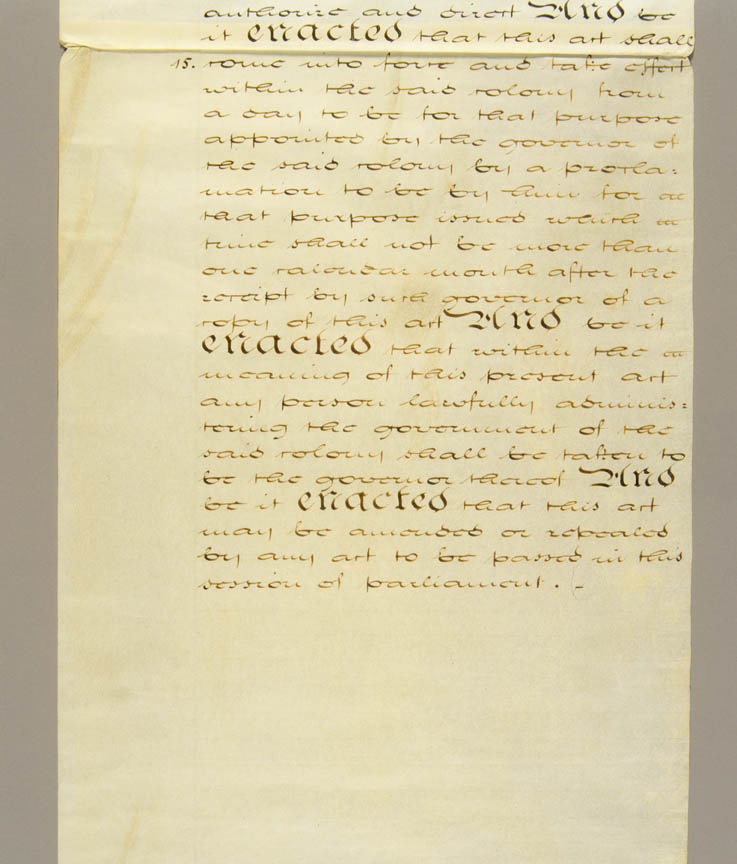 authorize and direct And be
it enacted that this act shall
15. come into force and take effect
within the said colony from
a day to be for that purpose
appointed by the governor of
the said colony by a procla:
mation to be by him for
that purpose issued which
time shall not be more than
one calendar month after the
receipt by such governor of a
copy of this act And be it
enacted that within the
meaning of this present act
any person lawfully adminis:
tering the government of the
said colony shall be taken to
be the governor thereof And
be it enacted that this act
may be amended or repealed
by any act to be passed in this
session of parliament . _